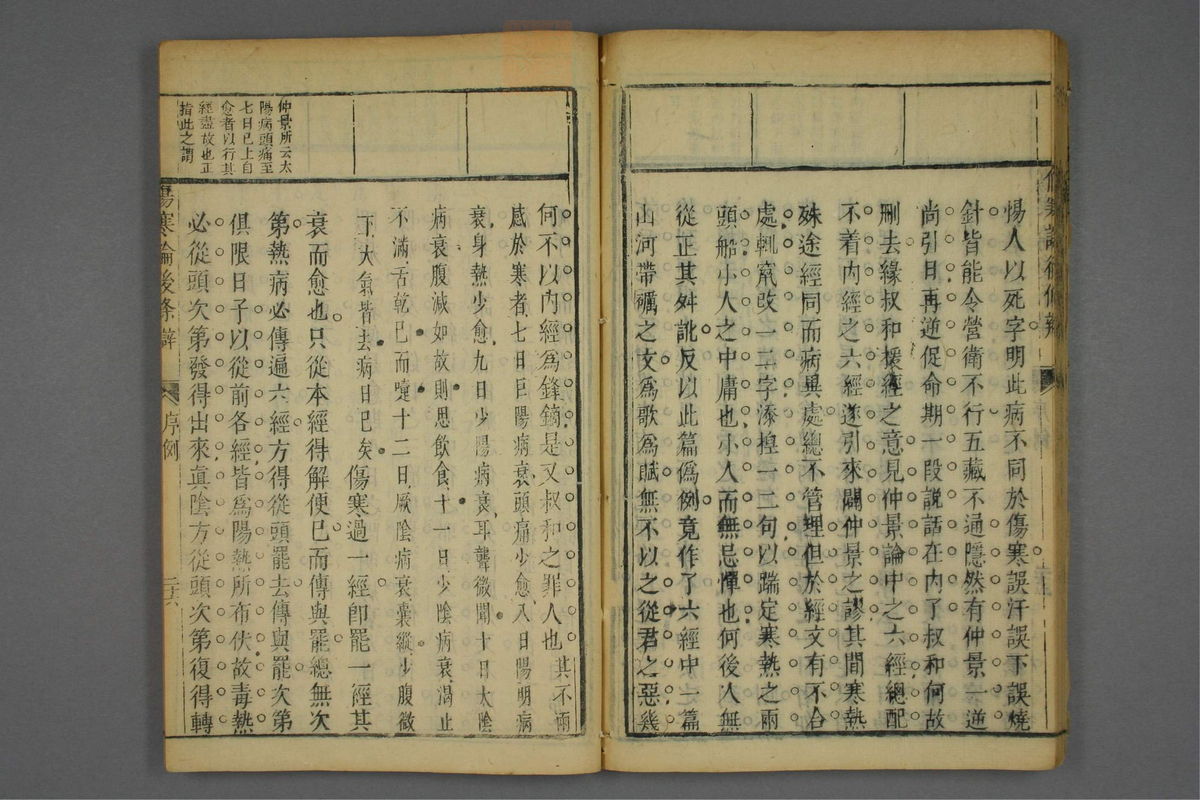 惕人以死字明此病不同於傷寒誤汗誤下誤燒
針皆能令營衛不行五藏不通隱然有仲景一逆
尚引日再逆促命期一段說話在內了叔和何故
刪去緣叔和援經之意見仲景論中之六經總配
不着內經之六經遂引來闢仲景之謬其間寒熱
殊途經同而病異處總不管理但於經文有不合
處輒竄改一二字添揑一二句以踹定寒熱之兩
頭船小人之中庸也小人而無忌憚也何後人無
從正其舛訛反以此篇爲例竟作了六經中一篇
山河帶礪之文爲歌爲賦無不以之從君之惡幾
何不以內經爲鋒鏑是又叔和之罪人也其不兩
感於寒者七日巨陽病衰頭痛少愈八日陽明病
衰身熱少愈九日少陽病衰耳聾微聞十日太陰
病衰腹減如故則思飲食十一日少陰病衰渴止
不滿舌乾已而嚏十二日厥陰病衰囊縱少腹微
下大氣皆去病日已矣傷寒過一經卽罷一經其
衰而愈也只從本經得解便已而傳與罷總無次
第熱病必傳遍六經方得從頭罷去傳與罷次第
俱限日子以從前各經皆爲陽熱所布伏故毒熱
必從頭次第發得出來眞陰方從頭次第復得轉
仲景所云太
陽病頭痛至
七日已上自
愈者以行其
經盡故也正
指此之謂
傷寒論後条辯
序例
二六